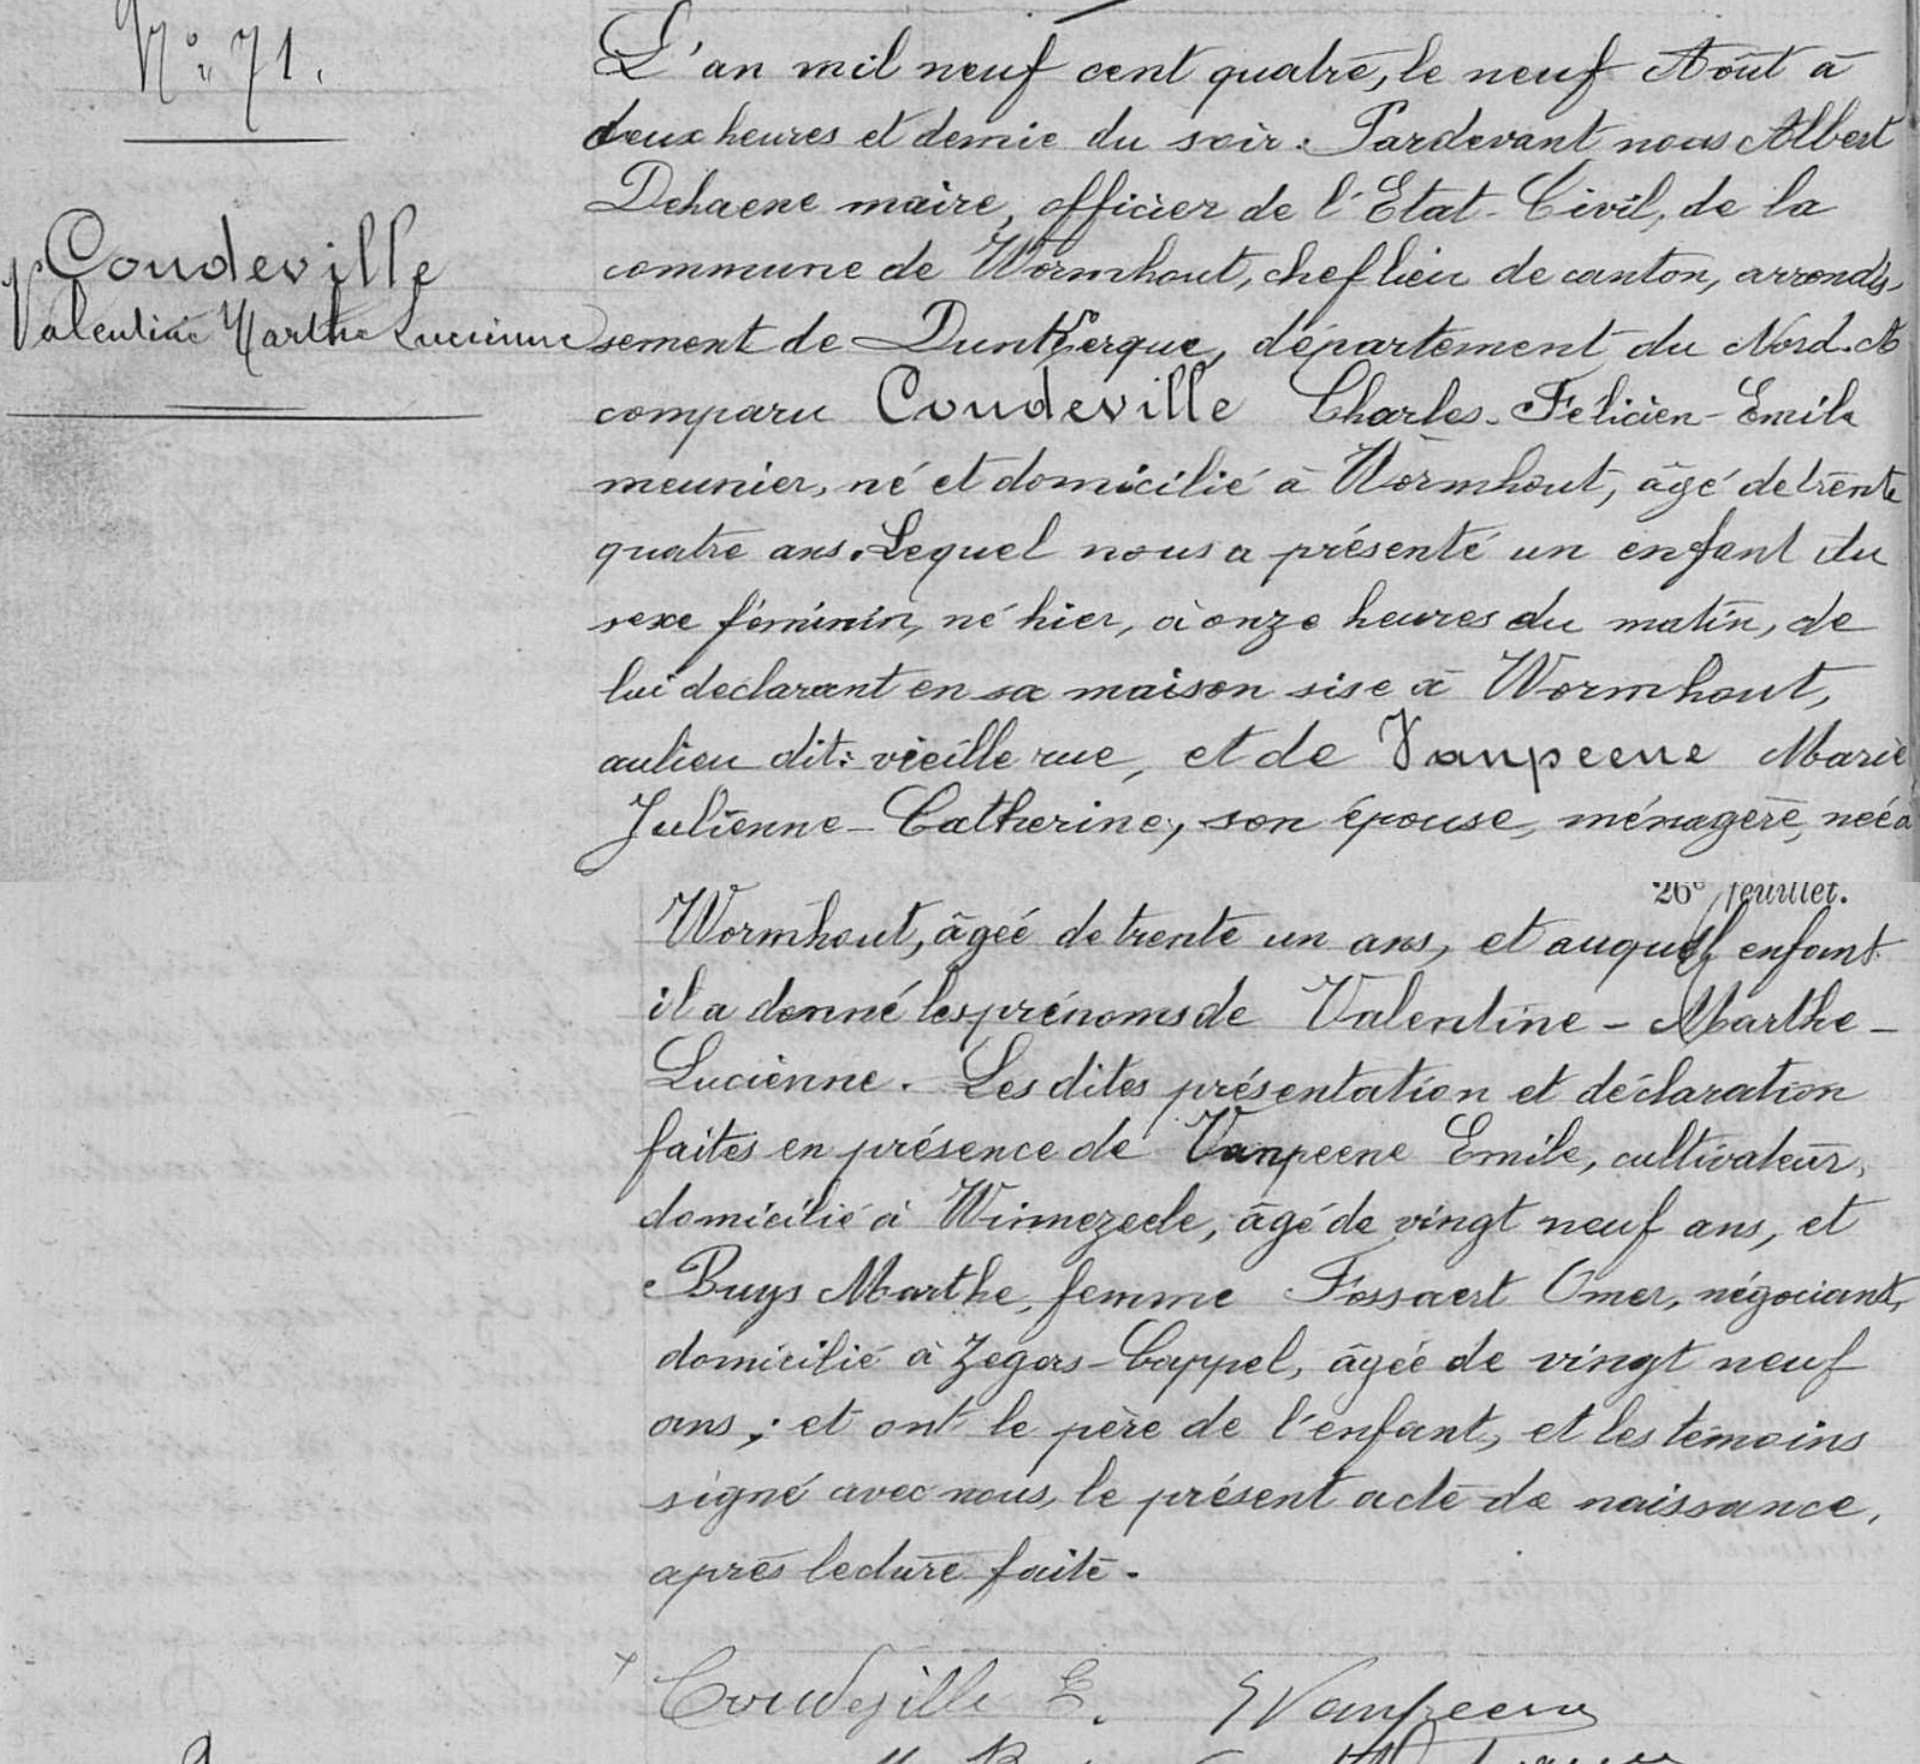 N° 71.
Coudeville
Valentine Marthe Lucienne
L'an mil neuf cent quatre, le neuf Août à
deux heures et demie du soir. Pardevant nous Albert
Dehaene maire, officier de l'Etat-Civil, de la
commune de Wormhout, chef lieu de canton, arrondis-
sement de Dunkerque, département du Nord. A
comparu Coudeville Charles-Félicien-Emile
meunier, né et domicilié à Wormhout, âgé de trente
quatre ans. Lequel nous a présenté un enfant du
sexe féminin, né hier, à onze heures du matin, de
lui déclarant en sa maison sise à Wormhout,
au lieu dit: vieille rue, et de Vanpeene Marie
Julienne-Catherine, son épouse, ménagère, née à
26e feuillet.
Wormhout, âgée de trente un ans, et auquel enfant
il a donné les prénoms de Valentine-Marthe-
Lucienne. Les dites présentation et déclaration
faites en présence de Vanpeene Emile, cultivateur,
domicilié à Winnezeele, âgé de vingt neuf ans, et
Buys Marthe, femme Fossaert Omer, négociant,
domicilié à Zegers-Cappel, âgée de vingt neuf
ans; et ont le père de l'enfant, et les témoins
signé avec nous, le présent acte de naissance,
après lecture faite.
Coudeville E. E Vanpeene